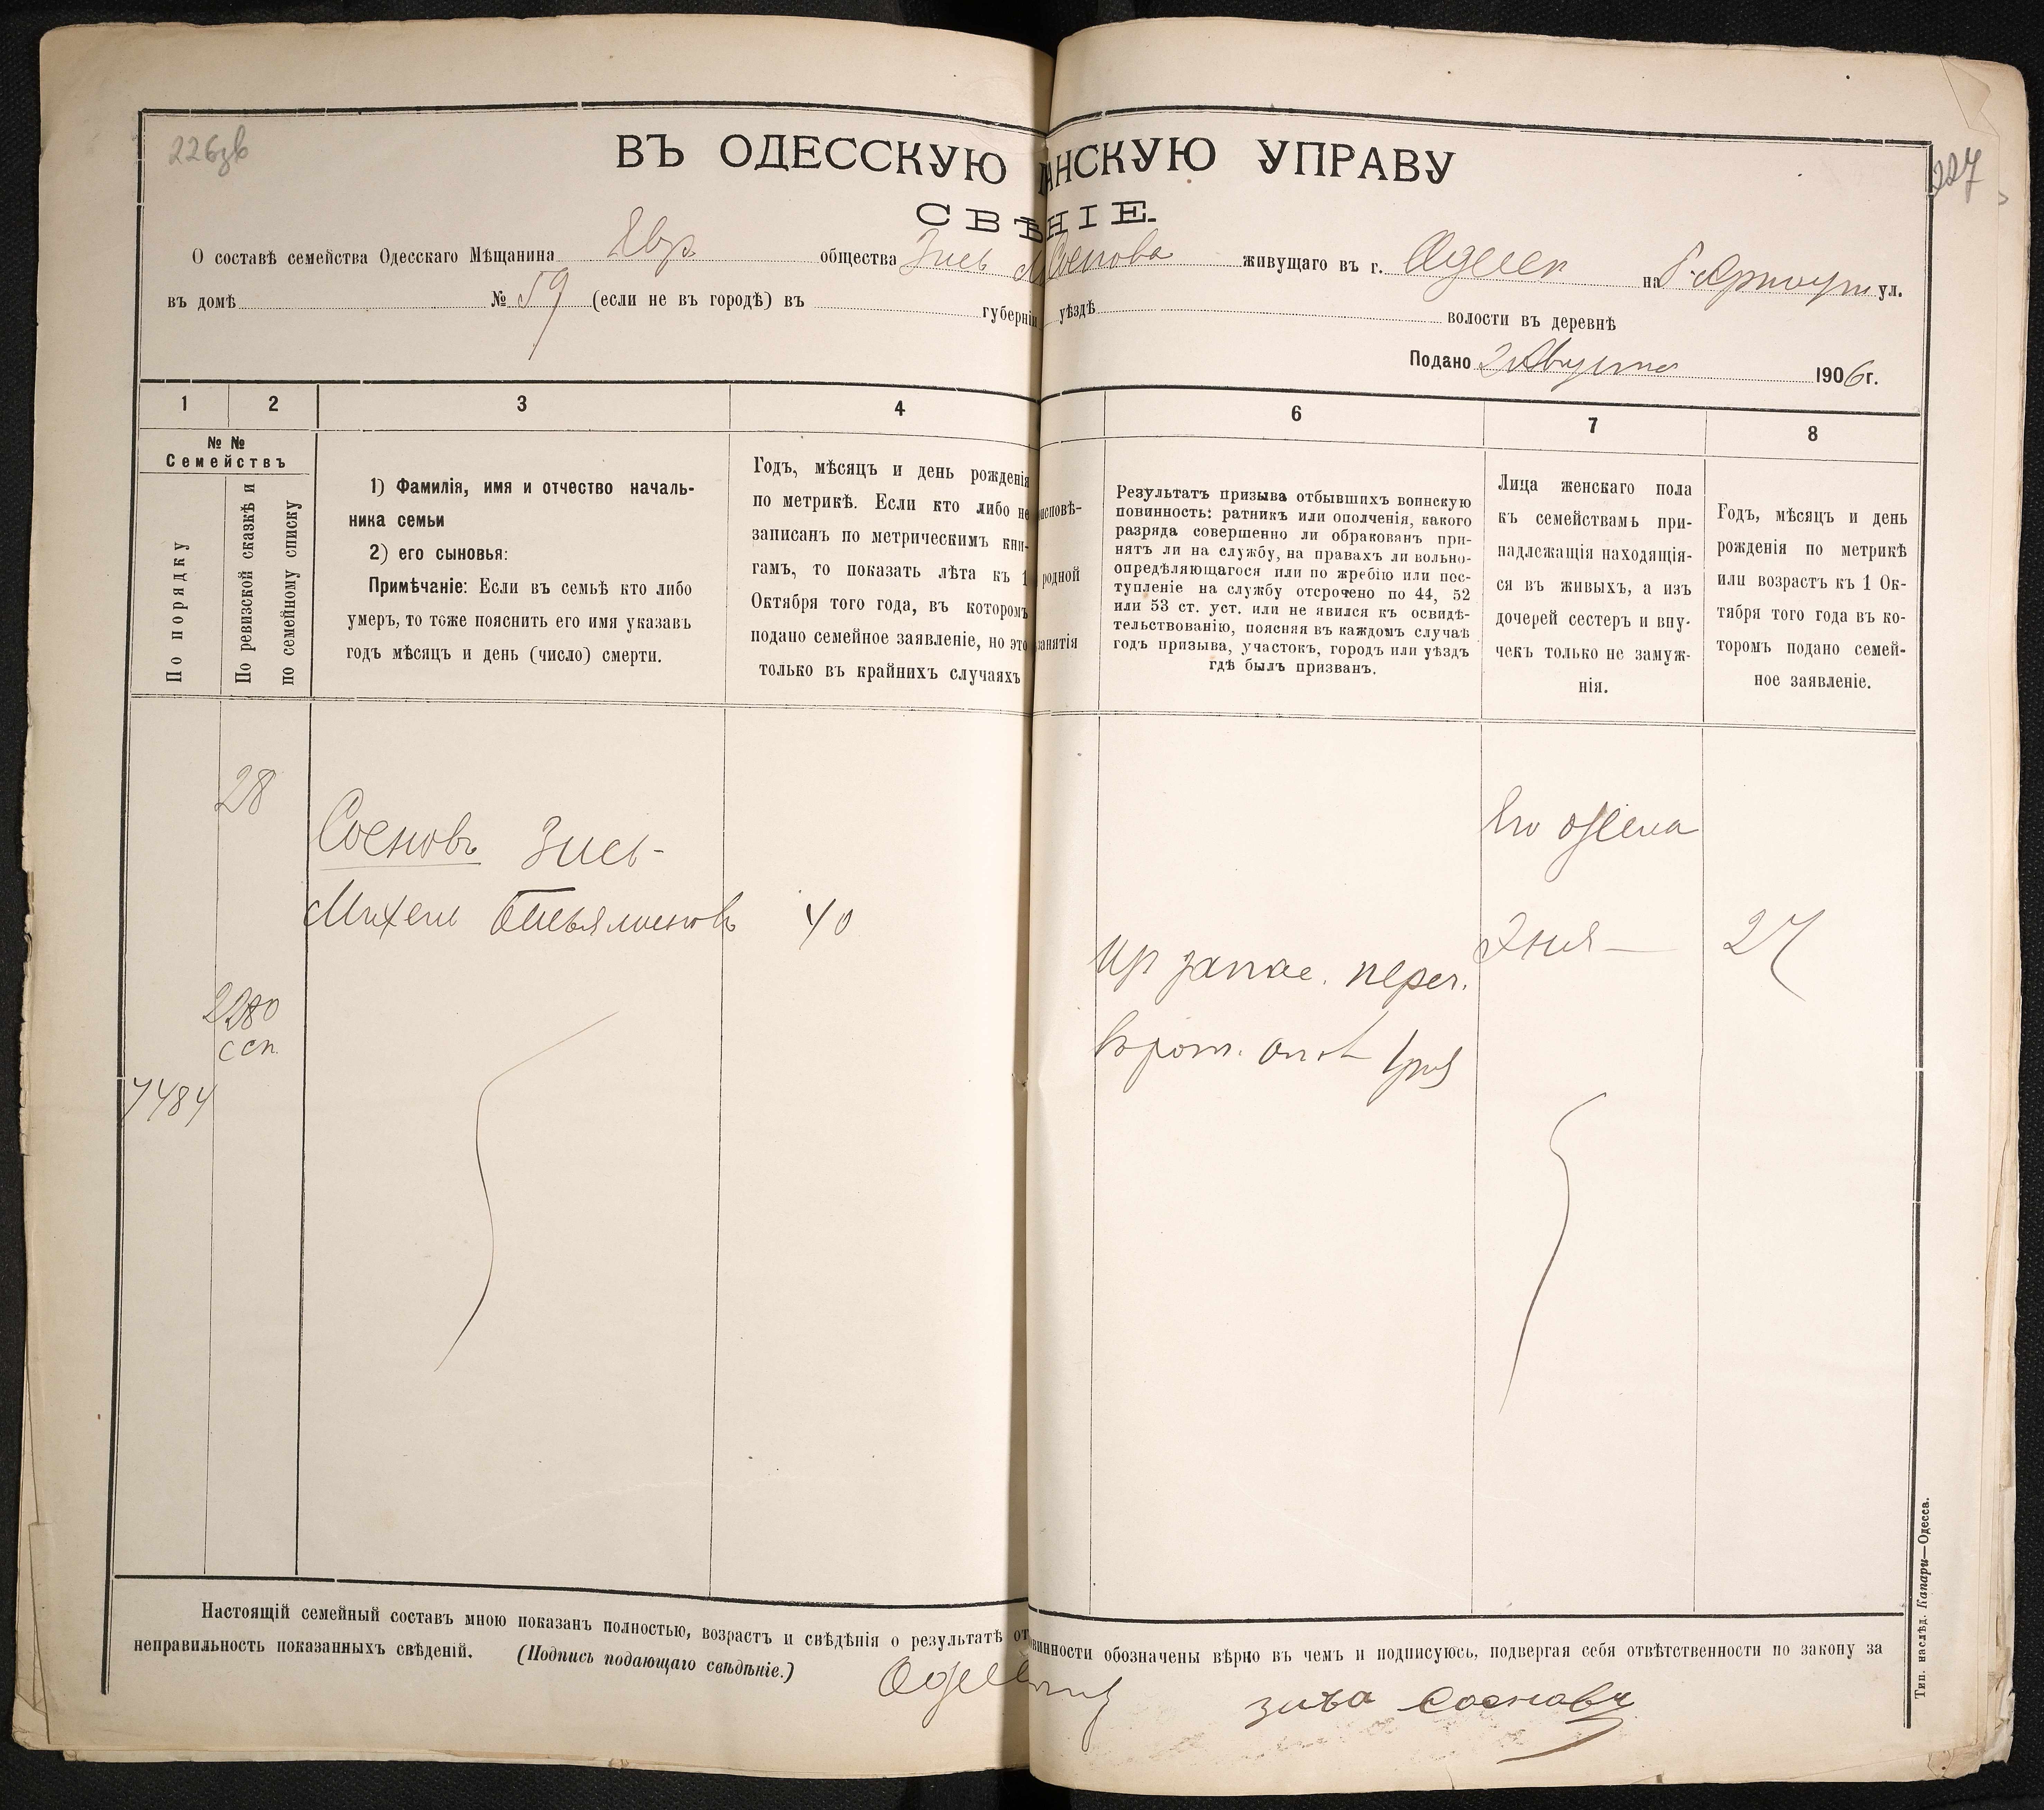 226зв
227
ВЪ ОДЕССКУЮ АНСКУЮ УПРАВУ
СВѢНІЕ.
О составѣ семейства Одесскаго Мѣщанина Евр общества Зись М Соснова живущаго въ г. Одессѣ на Б. Арнаут ул.
въ домѣ № 59 (если не въ городѣ) въ губерніи уѣздѣ волости въ деревнѣ
Подано 2 Августа 1906 г.
1 2 3 4 6 7 8
№ №
Семействъ
По порядку
По ревизской сказкѣ и
по семейному списку
1) Фамилія, имя и отчество началь-
ника семьи
2) его сыновья:
Примѣчаніе: Если въ семьѣ кто либо
умеръ, то тоже пояснить его имя указавъ
годъ мѣсяцъ и день (число) смерти.
Годъ, мѣсяцъ и день рожденія
по метрикѣ. Если кто либо не
записанъ по метрическимъ кни-
гамъ, то показать лѣта къ 1
Октября того года, въ которомъ
подано семейное заявленіе, но это
только въ крайнихъ случаяхъ
исповѣ-
родной
занятія
Результатъ призыва отбывшихъ воинскую
повинность: ратникъ или ополченія, какого
разряда совершенно ли обракованъ при-
нятъ ли на службу, на правахъ ли вольно-
опредѣляющагося или по жребію или пос-
тупленіе на службу отсрочено по 44, 52
или 53 ст. уст. или не явился къ освидѣ-
тельствованію, поясняя въ каждомъ случаѣ
годъ призыва, участокъ, городъ или уѣздъ
гдѣ былъ призванъ.
Лица женскаго пола
къ семействамъ при-
надлежащія находящія-
ся въ живыхъ, а изъ
дочерей сестеръ и вну-
чекъ только не замуж-
нія.
Годъ, мѣсяцъ и день
рожденія по метрикѣ
или возрастъ къ 1 Ок-
тября того года въ ко-
торомъ подано семей-
ное заявленіе.
28
Сосновъ Зись-
Михель Биньяминовъ 40
Его жена
Эня 27
Из запас. переч.
в рат. опол 1 раз
2280
ссп
7484
Настоящій семейный составъ мною показанъ полностью, возрастъ и свѣдѣнія о результатѣ от винности обозначены вѣрно въ чемъ и подписуюсь, подвергая себя отвѣтственности по закону за
неправильность показанныхъ свѣденій. (Подпись подающаго свѣдѣніе.)
зиса Сосновъ
Тип. наслѣд. Капари—Одесса.